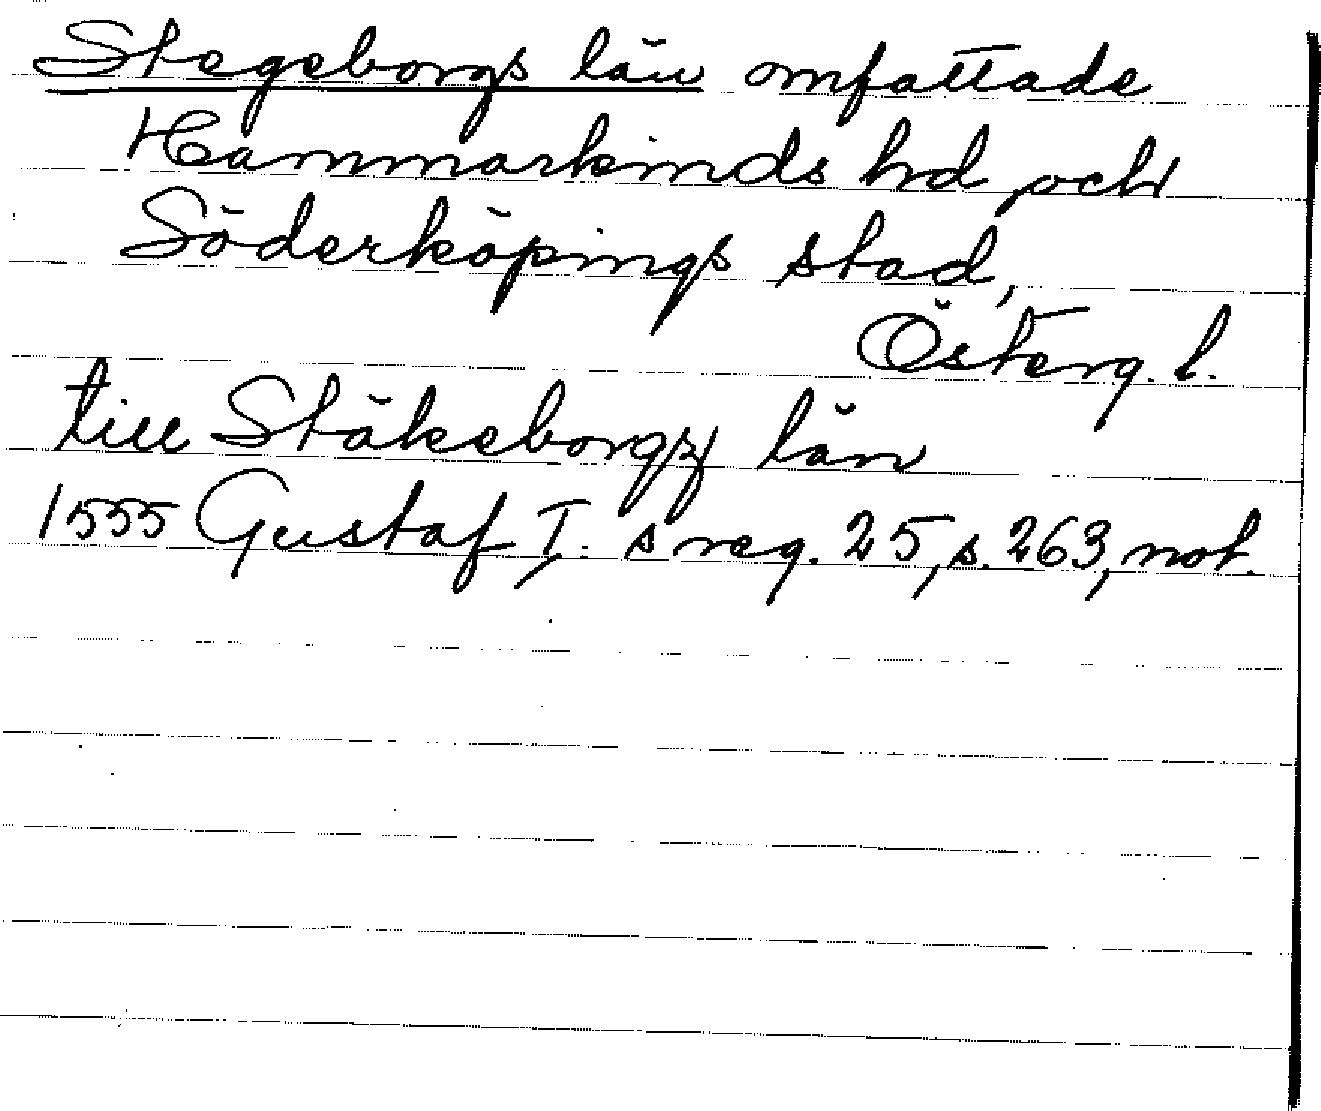 Stegeborgs län omfattade
Hammarkinds hd och
Söderköpings stad,
Österg. l.
till Stäkeborgz län
1555 Gustaf I:s reg. 25, s. 263, not.